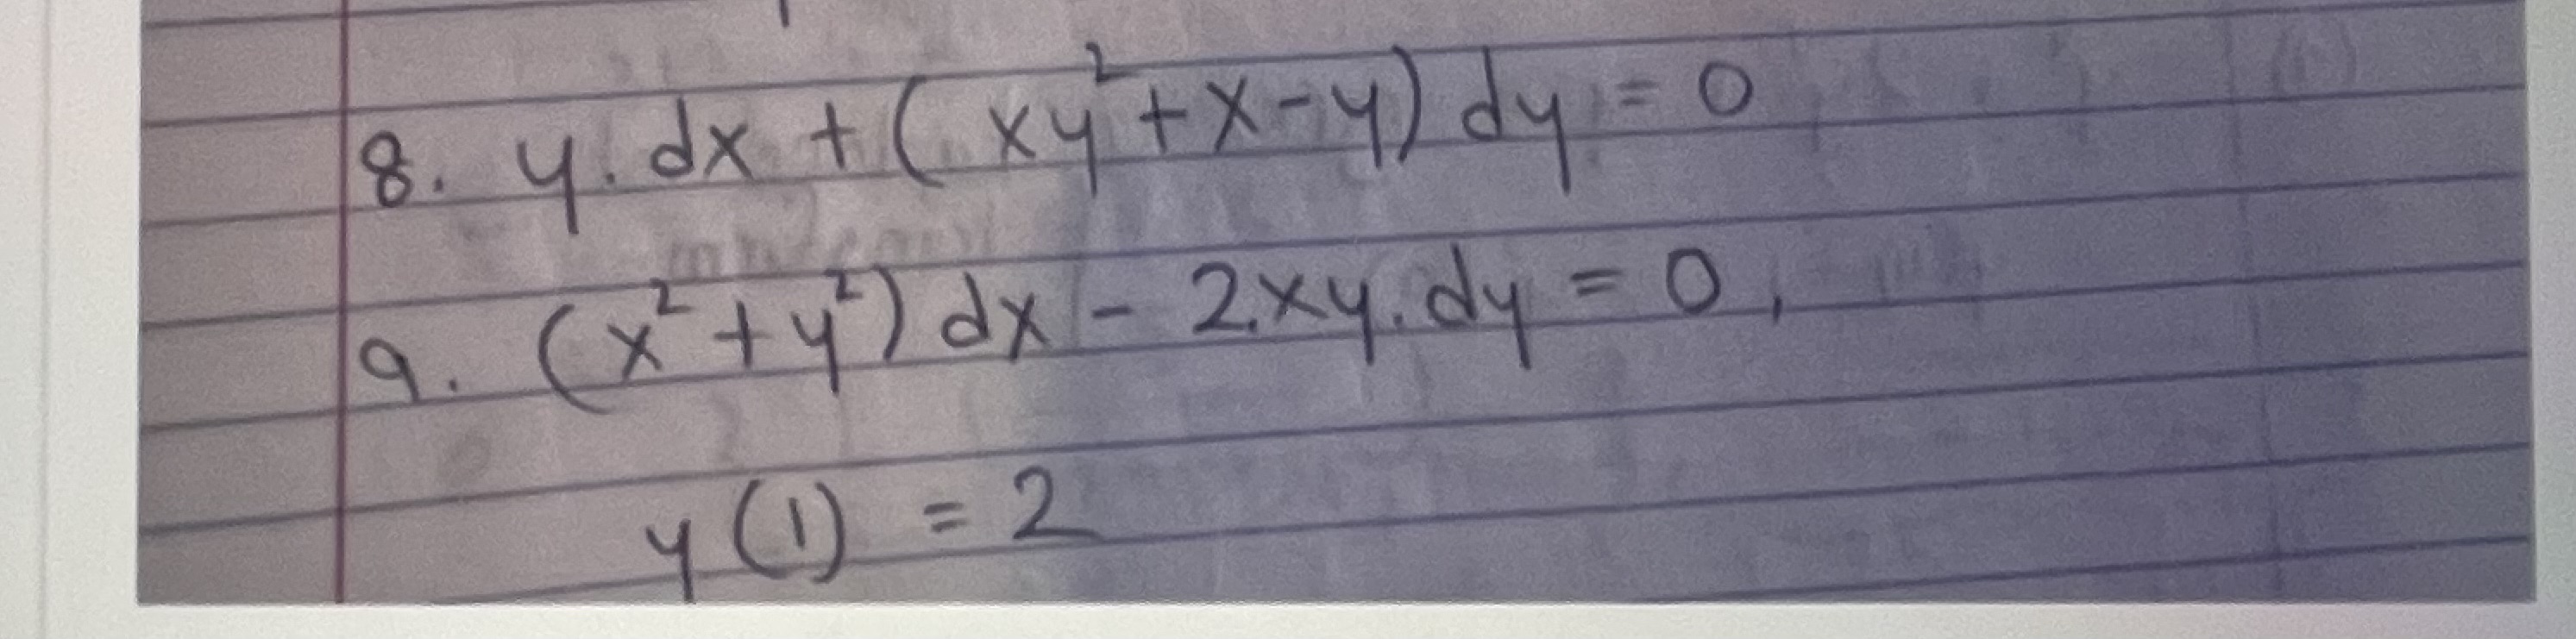 8. y. dx + (xy²+x-y) dy = 0
9. (x²+y²) dx - 2.xy. dy = 0,
y(1) = 2